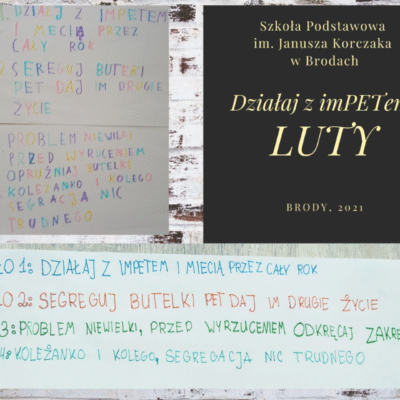 DZIAŁAJ Z IMPETEM
I MECIĄ PRZEZ
CAŁY ROK
SEREGUJ
PET DAJ IM DRUGIE
ŻYCIE
PROBLEM NIEWILKI
PRZED WYRUCENIEM
OPRUŹNIAJ BUTELKI
KOLEŻANKO I KOLEGO
SEGRACJA NIC
TRUDNEGO
Szkoła Podstawowa
im. Janusza Korczaka
w Brodach
Działaj z imPETem
LUTY
BRODY, 2021
ŁO 1: DZIAŁAJ Z IMPETEM I MIECIĄ PRZEZ CAŁY ROK
ŁO 2: SEGREGUJ BUTELKI PET DAJ IM DRUGIE ŻYCIE
3: PROBLEM NIEWIELKI, PRZED WYRZUCENIEM ODKRĘCAJ ZAKRĘ
4: KOLEŻANKO I KOLEGO, SEGREGACJA NIC TRUDNEGO